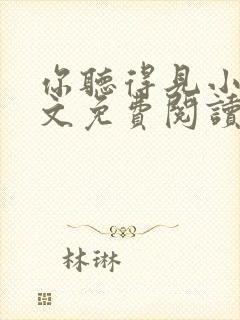 你聽得見小
文免費閱讀
林琳